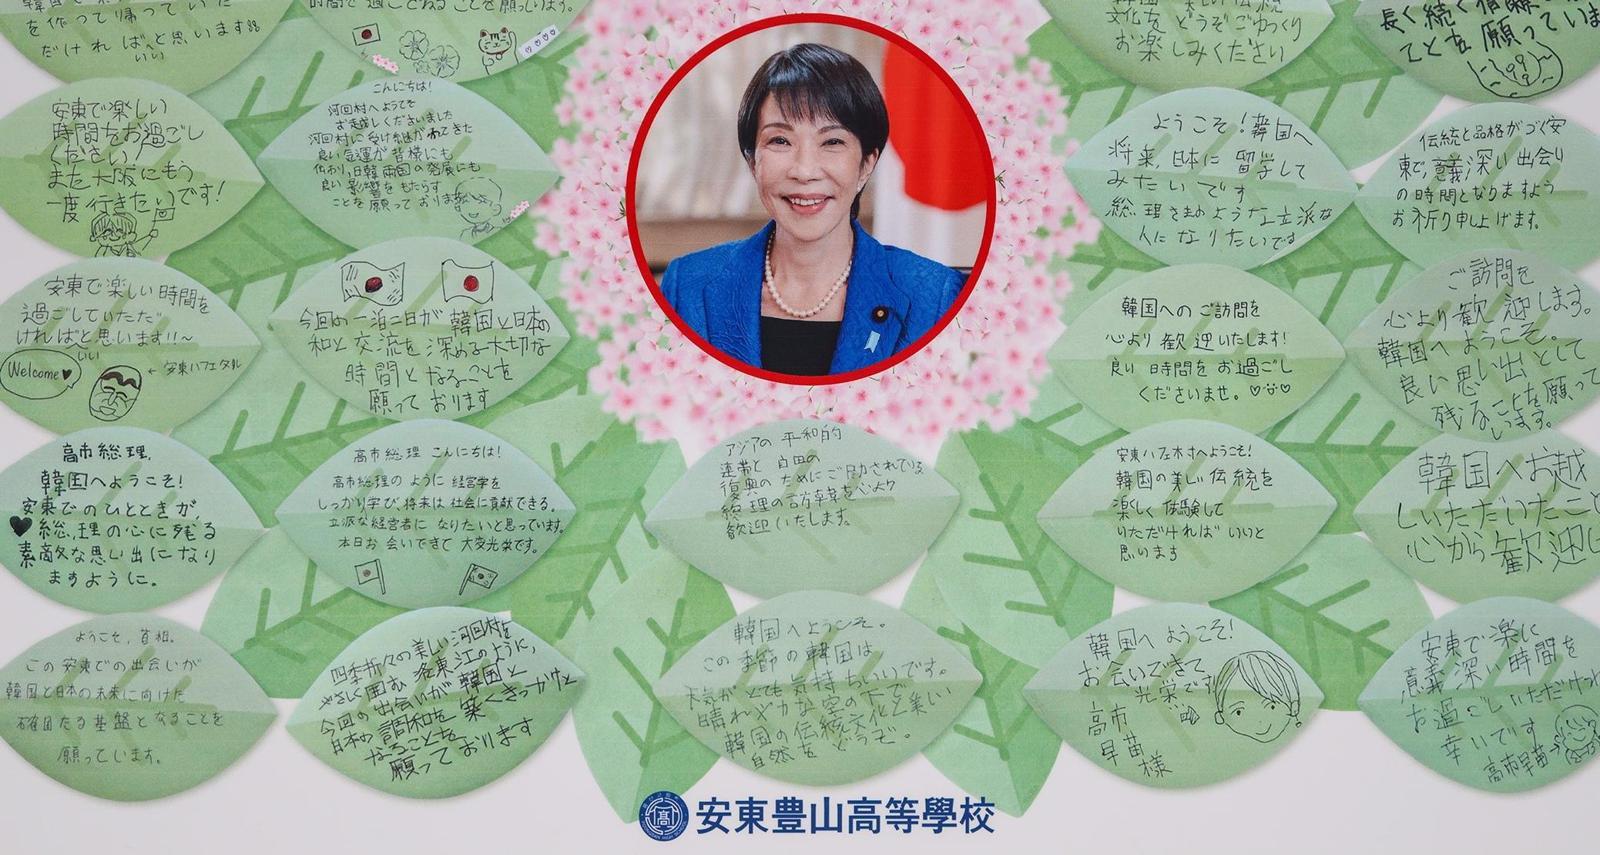 を作って帰っていた
だければと思います
時間を過ごせることを願っています。
文化をどうぞごゆっくり
お楽しみください
長く続く
ことを願っています
安東で楽しい
時間をお過ごし
ください!
また大阪にもう
一度行きたいです!
こんにちは!
河回村へようこそ
お越しくださいました
河回村に受け継がれてきた
良い気運が皆様にも
伝わり、日韓両国の発展にも
良い影響をもたらす
ことを願っております
ようこそ!韓国へ
将来、日本に留学して
みたいです
総理さまのような立派な
人になりたいです
伝統と品格がつづく安
東で、意義深い出会い
の時間となりますよう
お祈り申し上げます。
安東で楽しい時間を
過ごしていただ
ければと思います!!~
いい
Welcome♥
← 安東ハフェタル
今回の一泊二日が韓国と日本の
和と交流を深める大切な
時間となることを
願っております
韓国へのご訪問を
心より歓迎いたします!
良い時間をお過ごし
くださいませ。
ご訪問を
心より歓迎します。
韓国へようこそ。
良い思い出として
残ることを願って
います。
高市総理、
韓国へようこそ!
安東でのひとときが、
♥総理の心に残る
素敵な思い出になり
ますように。
高市総理 こんにちは!
高市総理のように経営学を
しっかり学び、将来は社会に貢献できる。
立派な経営者になりたいと思っています。
本日お会いできて大変光栄です。
アジアの平和的
連帯と自由の
復興のためにご助力されている
総理の訪韓を心より
歓迎いたします。
安東ハフェ村へようこそ!
韓国の美しい伝統を
楽しく体験して
いただければいいと
思います
韓国へお越
しいただいたこと
心から歓迎し
ようこそ、首相。
この安東での出会いが
韓国と日本の未来に向けた
確固たる基盤となることを
願っています。
四季折々の美しい河回村を
やさしく囲む洛東江のように、
今回の出会いが韓国と
日本の調和を築くきっかけと
なることを
願っております
韓国へようこそ。
この季節の韓国は
天気がとても気持ちいいです。
晴れやかな空の下で
韓国の伝統文化と美しい
自然をどうぞ。
韓国へようこそ!
お会いできて
光栄です
高市
早苗
様
安東で楽に
意義深い時間を
お過ごしいただけ
幸いです
高市早苗
安東豊山高等學校